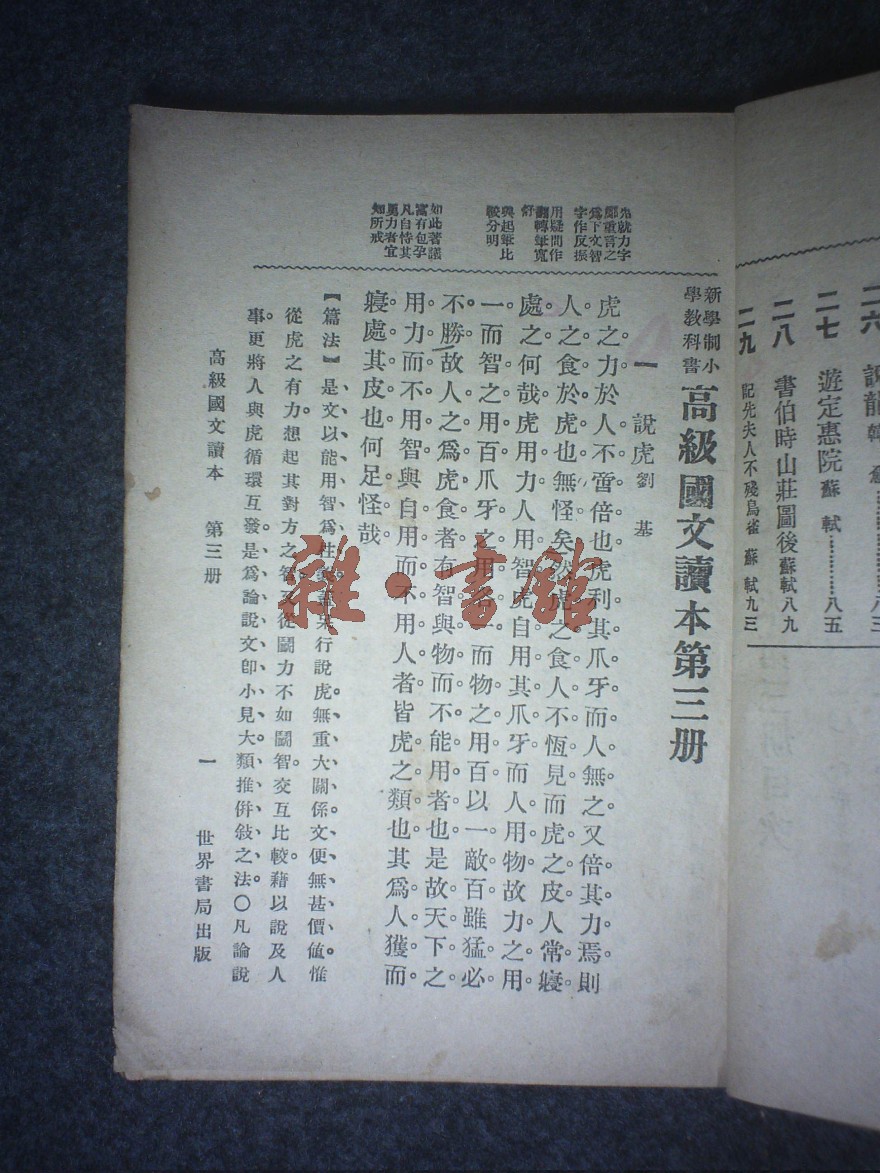 二六 說龍 韓愈…………八三
二七 遊定惠院 蘇軾…………八五
二八 書伯時山莊圖後 蘇軾 八九
二九 記先夫人不殘鳥雀 蘇軾 九三
新學制小學教科書 高級國文讀本第三册
一 說虎 劉基
虎之力於人不啻倍也。虎利其爪牙。而人無之。又倍其力焉。則
人之食於虎也。無怪矣。然虎之食人不恆見。而虎之皮人常寢
處之。何哉。虎用力。人用智。虎自用其爪牙。而人用物。故力之用
一。而智之用百。爪牙之用各一。而物之用百。以一敵百。雖猛必
不勝。故人之爲虎食者。有智與物而不能用者也。是故天下之
用力而不用智。與自用而不用人者。皆虎之類也。其爲人獲而
寢處其皮也。何足怪哉。
先就力字
鄭重言之
爲下文智
字作反振
用疑問作
翻轉筆寬
舒
與起筆比
較分明
如此著議
富有包孕
凡自恃其
勇力者宜
知所戒
【篇法】是文以能用智爲 行說虎。無重大關係。文便無甚價値。惟
從虎之有力。想起其對方之智。 從鬭力不如鬭智。交互比較。藉以說及人
事。更將人與虎循環互發。是爲論說文卽小見大。類推倂敍之法。〇凡論說
高級國文讀本 第三册 一 世界書局出版
雜·書館